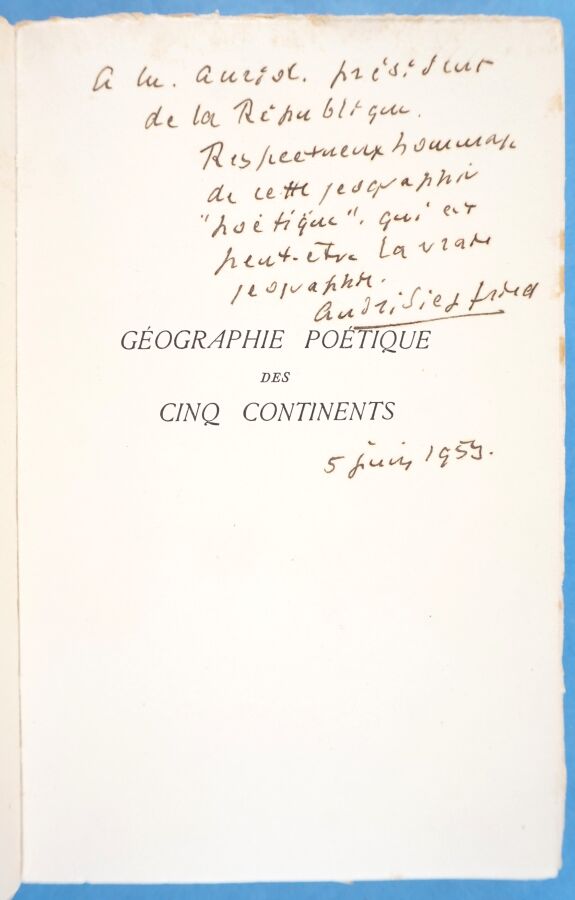 A M. Auriol. président
de la République.
Respectueux hommage
de cette géographie
"poétique", qui est
peut-être la vraie
géographie.
André Siegfried
GÉOGRAPHIE POÉTIQUE
DES
CINQ CONTINENTS
5 juin 1953.